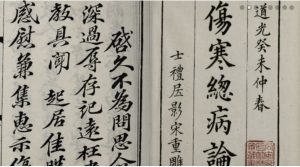 道光癸未仲春
傷寒總病論
士禮居影宋重雕
啓久不為問思企
深過辱存記遠枉書
教具聞起居佳勝
感慰兼集惠示傷